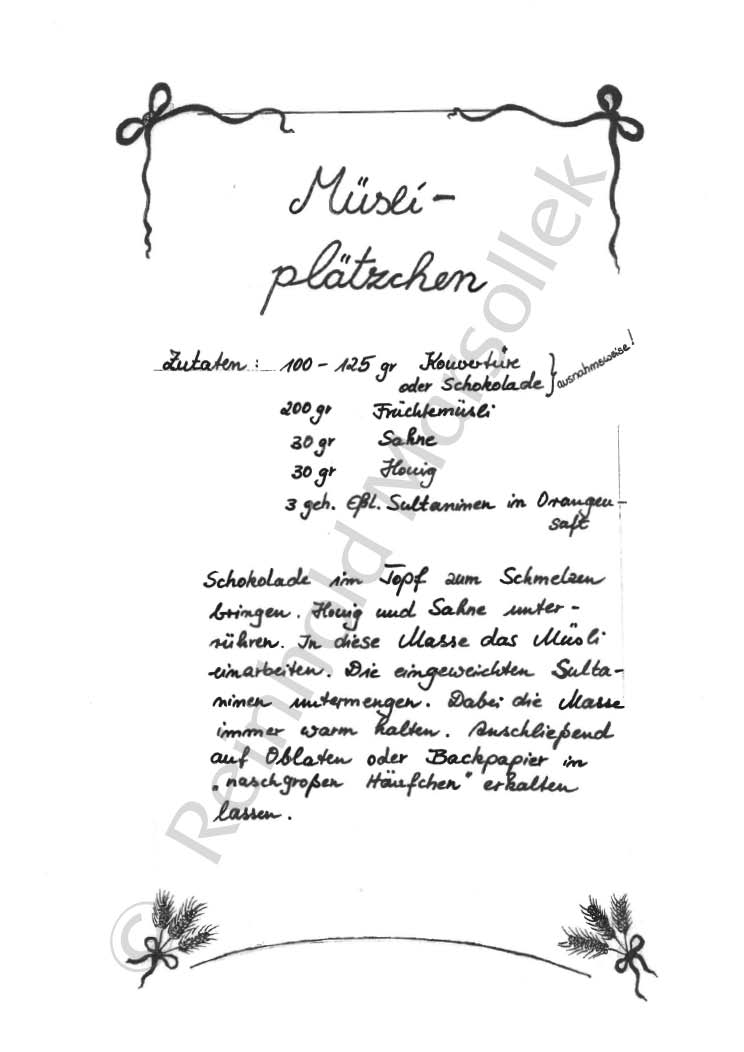 Müsli-
plätzchen
Zutaten: 100 - 125 gr Kouvertüre
oder Schokolade } ausnahmsweise!
200 gr Früchtemüsli
30 gr Sahne
30 gr Honig
3 geh. Eßl. Sultaninen in Orangen-
saft
Schokolade im Topf zum Schmelzen
bringen. Honig und Sahne unter-
rühren. In diese Masse das Müsli
einarbeiten. Die eingeweichten Sulta-
ninen untermengen. Dabei die Masse
immer warm halten. Anschließend
auf Oblaten oder Backpapier in
„naschgroßen Häufchen" erkalten
lassen.
© Reinhold Marsollek